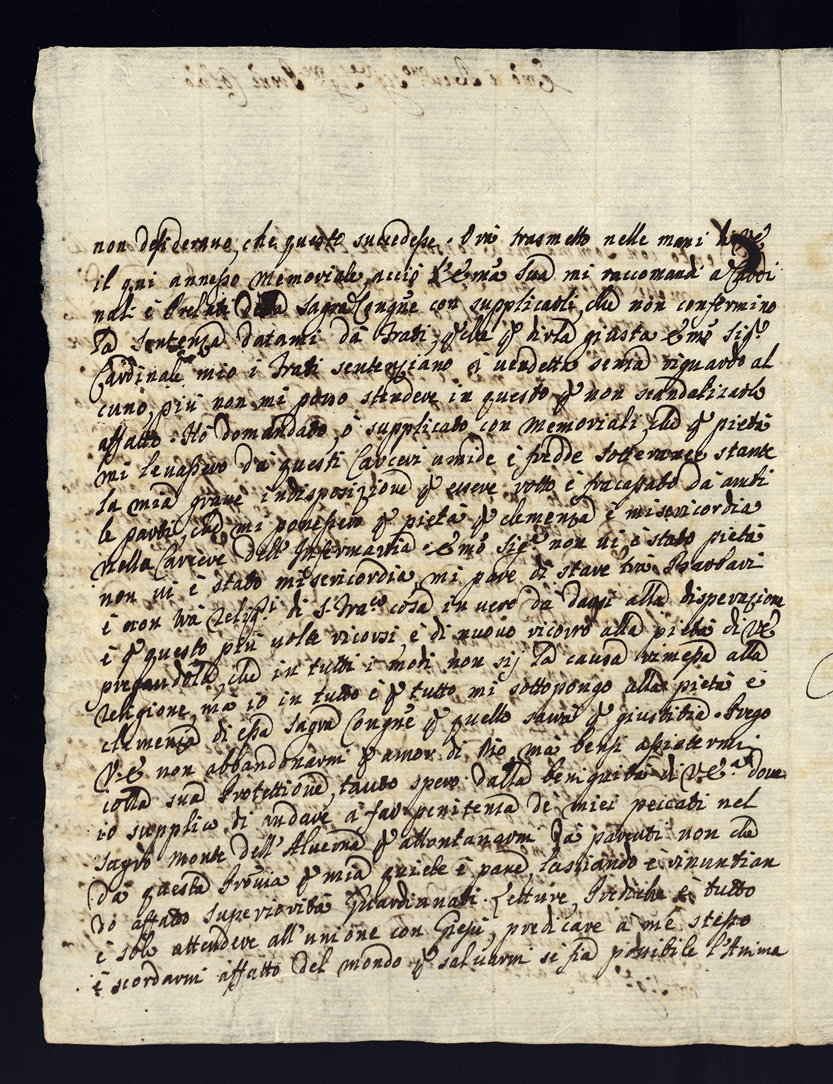 non desiderano, che questo succedesse. Ora trasmetto nelle mani di VE
il qui annesso Memoriale, acciò l'Emª Sua mi raccomandi a Cardi
nali e Prelati della Sagra Congne con supplicarli, che non confermino
la sentenza datami da Frati, che p dirla giusta Emo Sigr
Cardinale mio i Frati sentenziano p vendetta senza riguardo al
cuno, più non mi posso stendere in questo p non scandalizarlo
affatto. Hò domandato, ò supplicato con Memoriali, che p pietà
mi levassero da questi Carceri umide è fredde sotteranee stante
la mia grave indisposizione p essere rotto è fracassato da ambi
le parti, che mi ponessero p pietà p clemenza è misericordia
nella Carcere dell'Infermaria Emo Sigr non vi è stato pietà
non vi è stato misericordia, mi pare di stare trà Barbari
è non trà Religsi di S. Fraco cosa in vero da darsi alla disperazione
è p questo più volte ricorsi è di nuovo ricorro alla pietà di VE
pregandola che in tutti i modi non sij la causa rimessa alla
Religione, ma io in tutto è p tutto mi sottopongo alla pietà è
clemenza di essa Sagra Congne p quello sarà p giustitia. Prego
V.E. non abbandonarmi p amor di Dio, mà bensi assistermi
colla sua Protettione, tanto spero dalla benignità di V.Eª dove
io supplico di andare à far penitenza de miei peccati nel
Sagro Monte dell'Alverna p allontanarmi da parenti non che
da questa Provia p mia quiete è pace, lasciando è rinuntian
do affatto superiorità Guardianati. Letture, Prediche è tutto
è solo attendere all'unione con Giesù, predicare a me stesso
è scordarmi affatto del mondo p salvarmi se sia possibile l'Anima